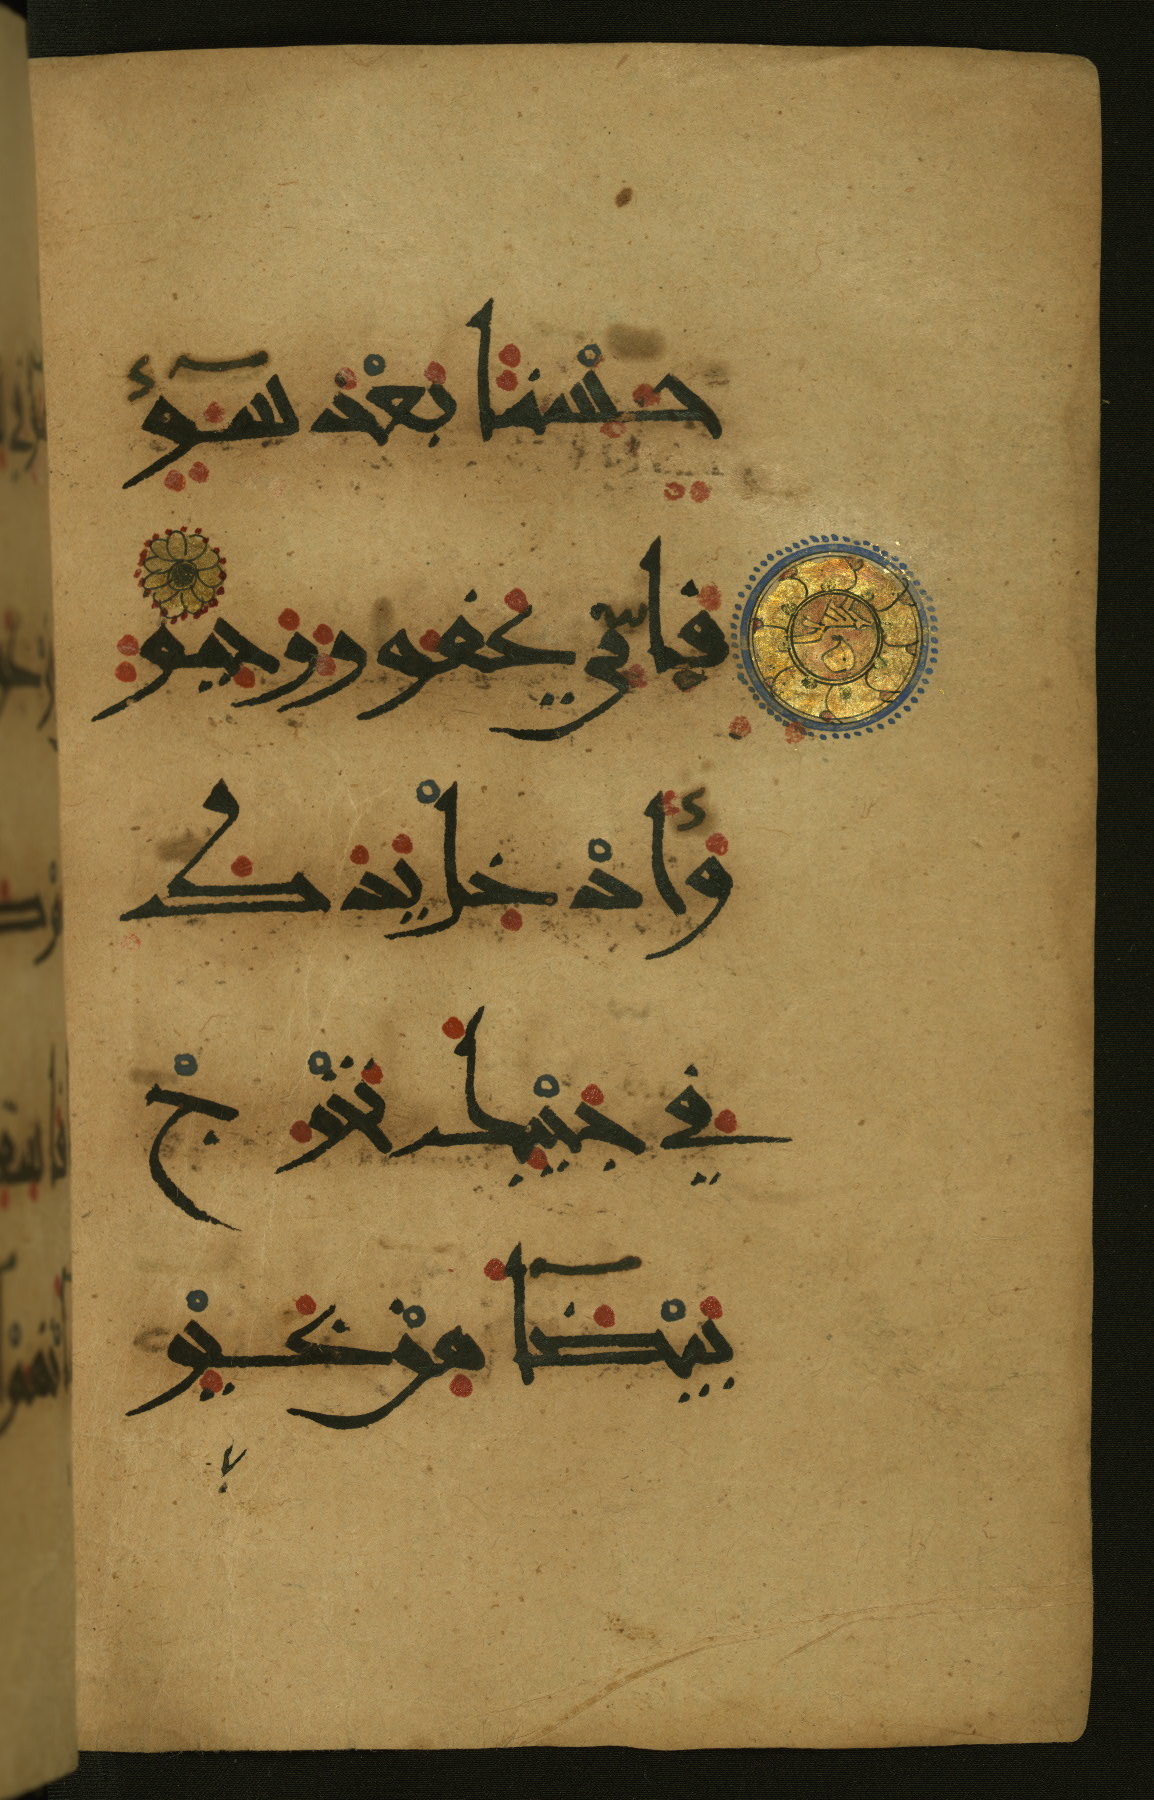 حسنا بعد سوء
فاني غفور رحيم
وادخل يدك
في جيبك تخرج
بيضا من غير